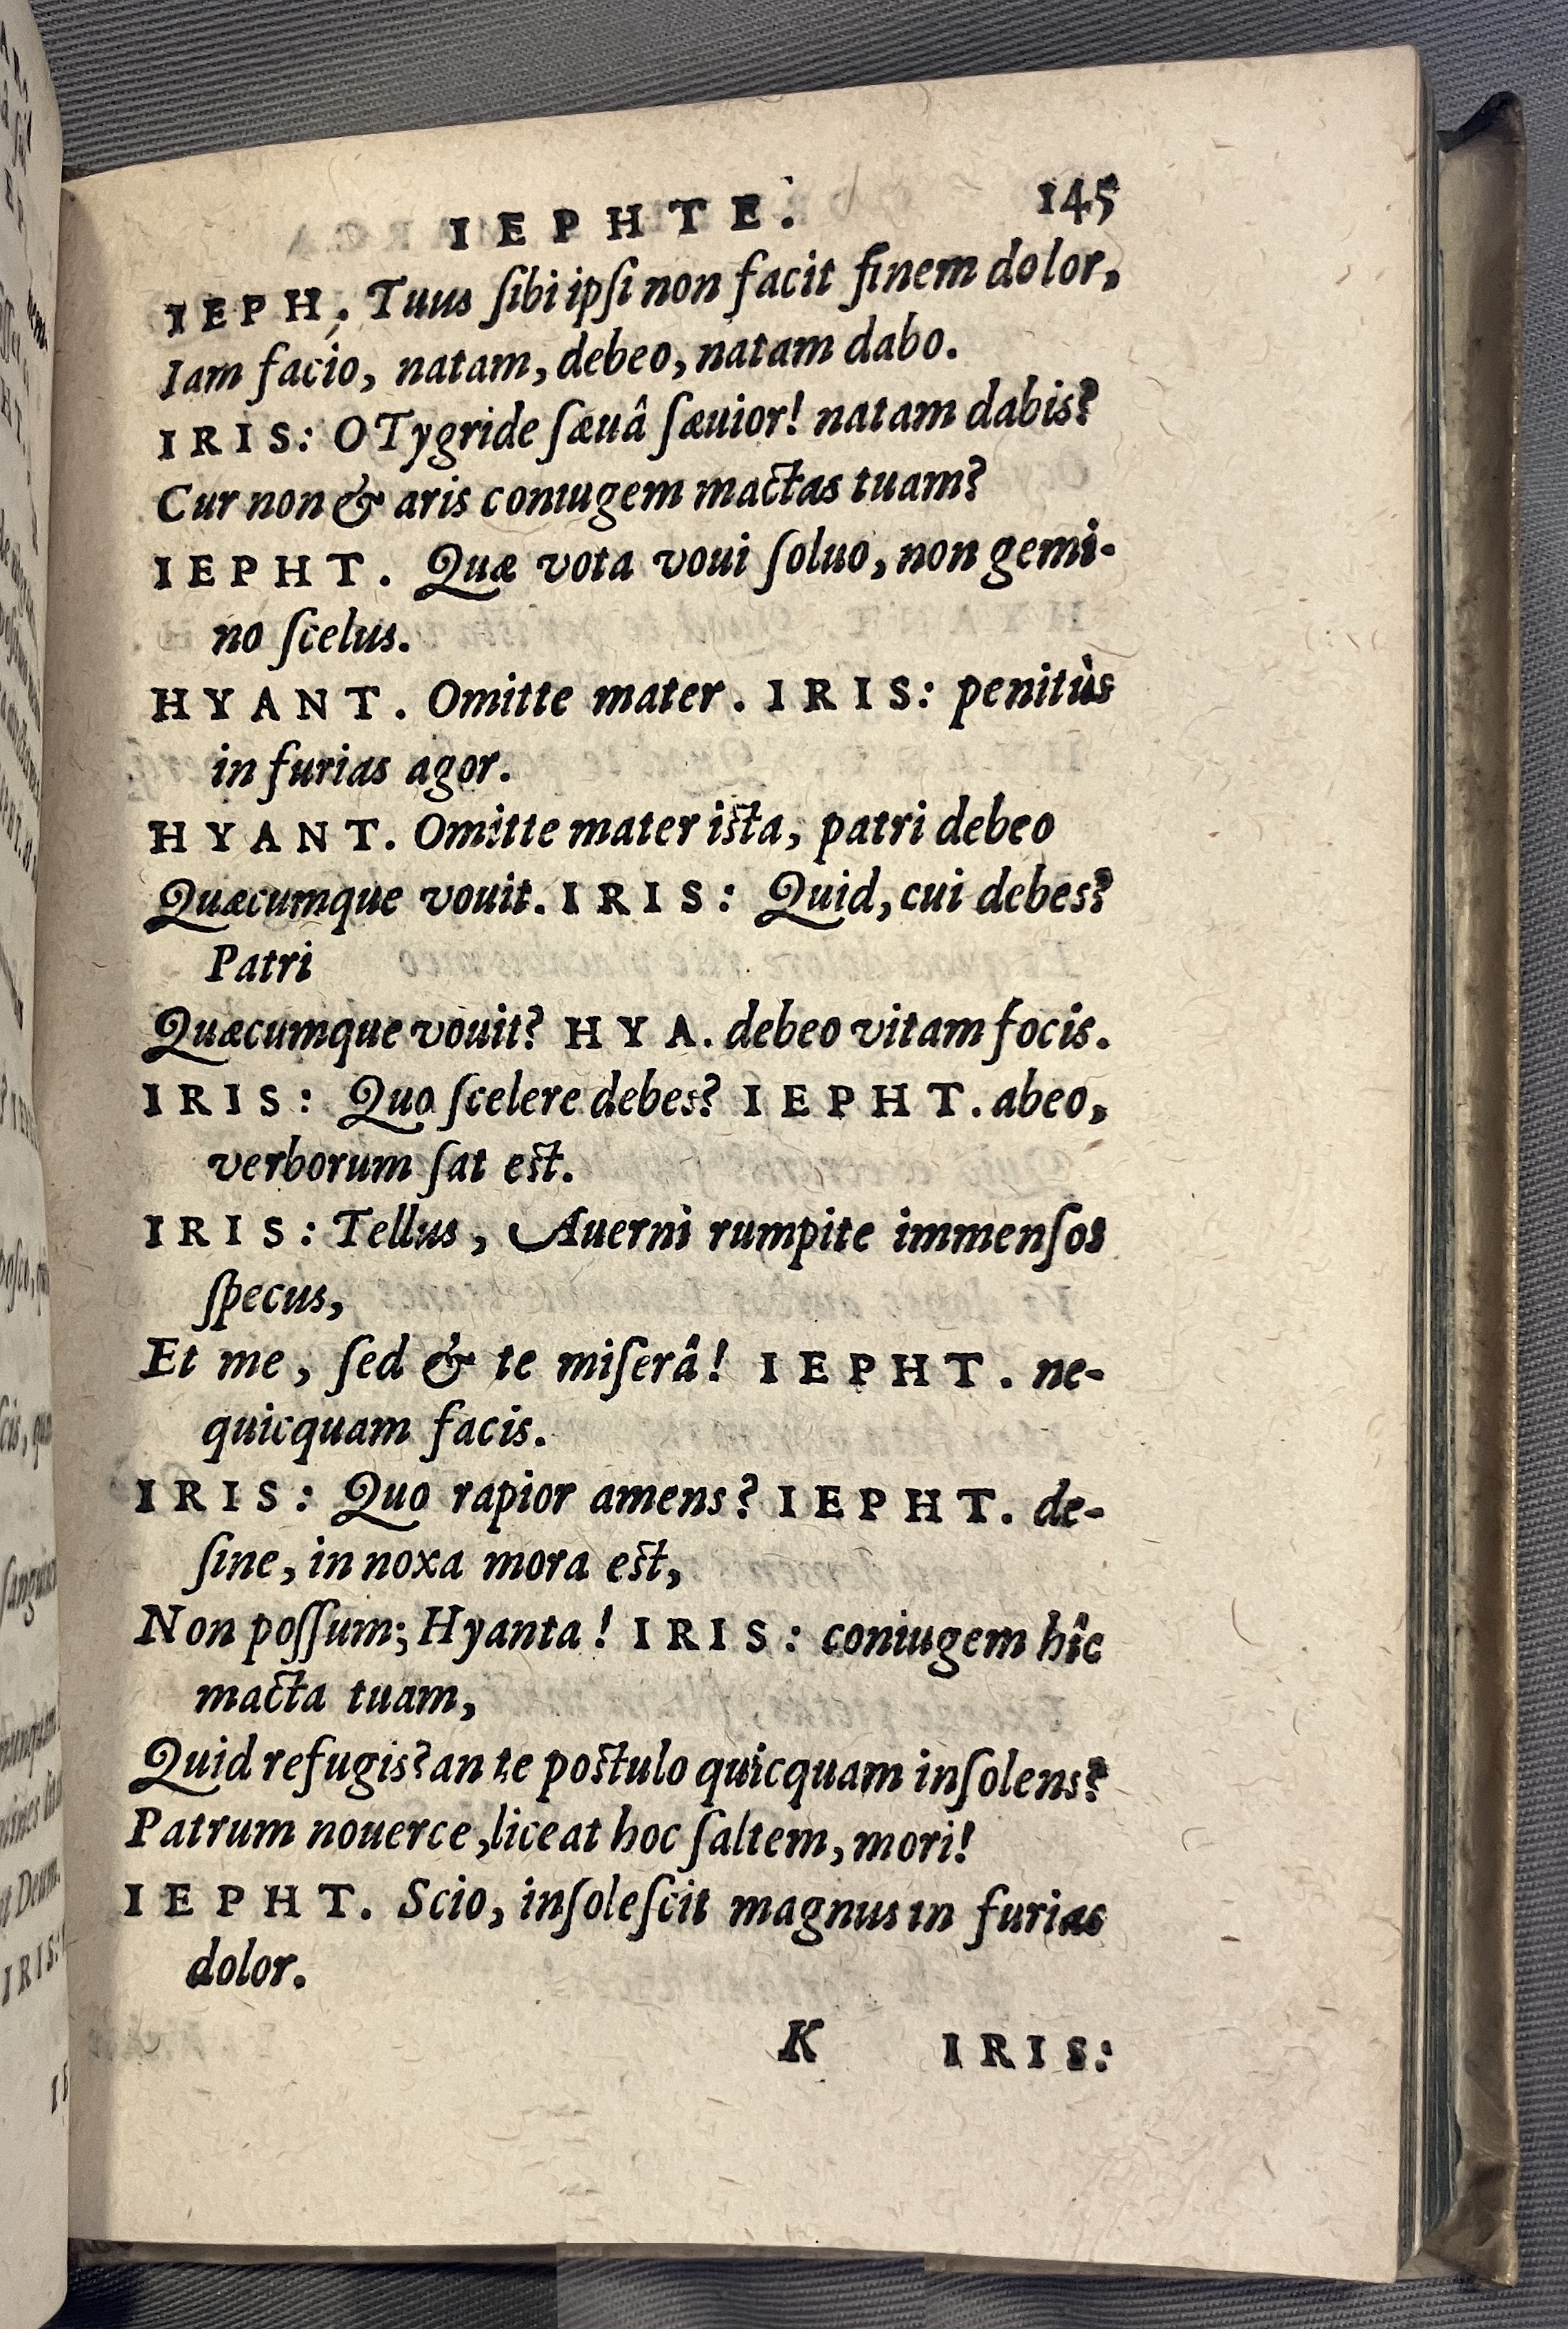 IEPHTE. 145
IEPH. Tuus ſibi ipſi non facit finem dolor,
Iam facio, natam, debeo, natam dabo.
IRIS: O Tygride ſæuâ ſæuior! natam dabis?
Cur non & aris coniugem mactas tuam?
IEPHT. Quæ vota voui ſoluo, non gemi-
no ſcelus.
HYANT. Omitte mater. IRIS: penitùs
in furias agor.
HYANT. Omitte mater iſta, patri debeo
Quæcumque vouit. IRIS: Quid, cui debes?
Patri
Quæcumque vouit? HYA. debeo vitam focis.
IRIS: Quo ſcelere debes? IEPHT. abeo,
verborum ſat eſt.
IRIS: Tellus, Auerni rumpite immenſos
ſpecus,
Et me, ſed & te miſerâ! IEPHT. ne-
quicquam facis.
IRIS: Quo rapior amens? IEPHT. de-
ſine, in noxa mora eſt,
Non poſſum; Hyanta! IRIS: coniugem hîc
macta tuam,
Quid refugis? an te poſtulo quicquam inſolens?
Patrum nouerce, liceat hoc ſaltem, mori!
IEPHT. Scio, inſoleſcit magnus in furias
dolor.
K IRIS: